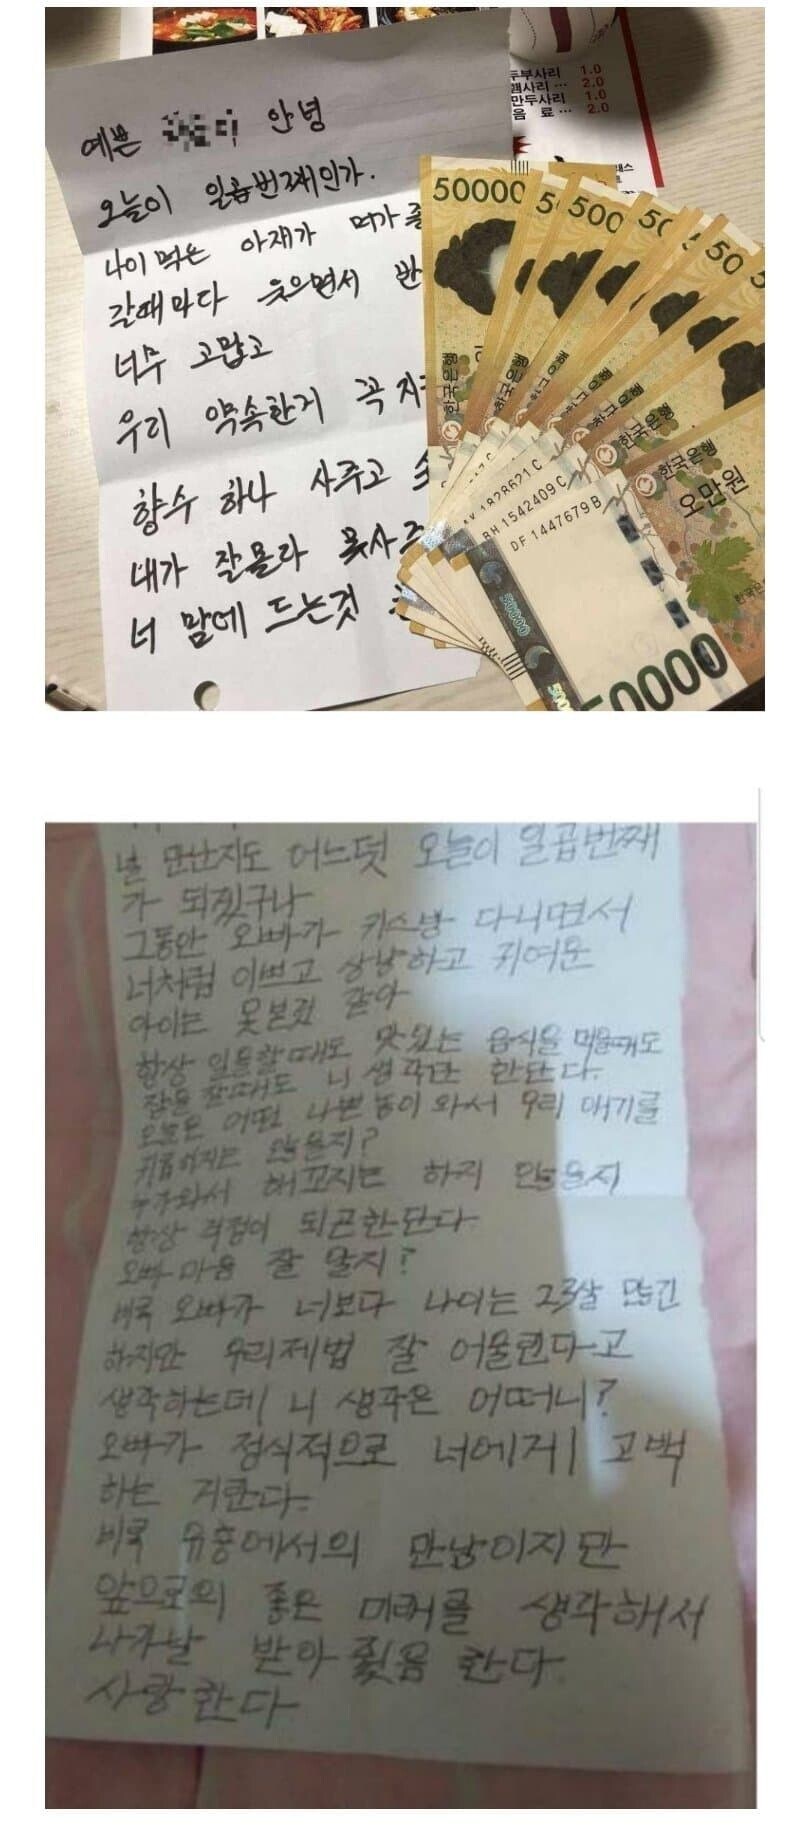 두부사리 1.0
햄사리 ... 2.0
만두사리 1.0
음 료 ... 2.0
예쁜 안녕
오늘이 일곱번째인가.
나이 먹은 아재가 머가 좋
갈때마다 웃으면서 반
너무 고맙고
우리 약속한거 꼭 지
향수 하나 사주고
내가 잘몰라 못사주
너 맘에 드는것
50000
500
50
50
한국은행
한국은행
한국은행
한국은행
한국은행
오만원
1828621 C
BH 1542409 C
DF 1447679 B
50000
50000
널 만난지도 어느덧 오늘이 일곱번째
가 되겠구나
그동안 오빠가 키스방 다니면서
너처럼 이쁘고 상냥하고 귀여운
아이는 못본것 같아
항상 일을할때도 맛있는 음식을 먹을때도
잠을 잘때도 니 생각만 한단다.
오늘은 어떤 나쁜놈이 와서 우리 애기를
괴롭히지는 않을지?
누가와서 해꼬지는 하지 안을지
항상 걱정이 되곤한단다
오빠 마음 잘 알지?
비록 오빠가 너보다 나이는 23살 많긴
하지만 우리제법 잘 어울린다고
생각하는데 니 생각은 어떠니?
오빠가 정식적으로 너에게 고백
하는 거란다.
비록 유흥에서의 만남이지만
앞으로의 좋은 미래를 생각해서
나가날 받아줬음 한다.
사랑한다